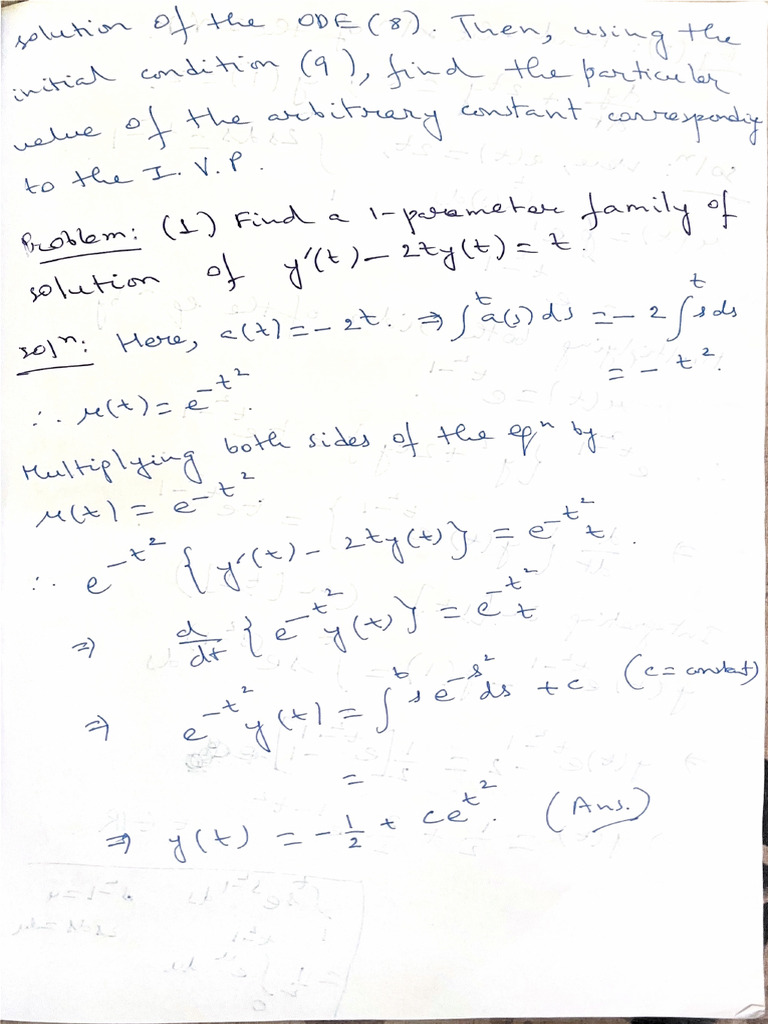 solution of the ODE (8). Then, using the
initial condition (9), find the particular
value of the arbitrary constant corresponding
to the I.V.P.
Problem: (1) Find a 1-parameter family of
solution of y'(t) - 2ty(t) = t.
solⁿ: Here, a(t) = -2t. ⇒ ∫^t a(s) ds = -2 ∫^t s ds
= -t².
∴ μ(t) = e^{-t²}.
Multiplying both sides of the eqⁿ by
μ(t) = e^{-t²}.
∴ e^{-t²} { y'(t) - 2ty(t) } = e^{-t²} t.
⇒ d/dt { e^{-t²} y(t) } = e^{-t²} t
⇒ e^{-t²} y(t) = ∫^t s e^{-s²} ds + c (c = constant)
=
⇒ y(t) = -1/2 + ce^{t²}. (Ans.)